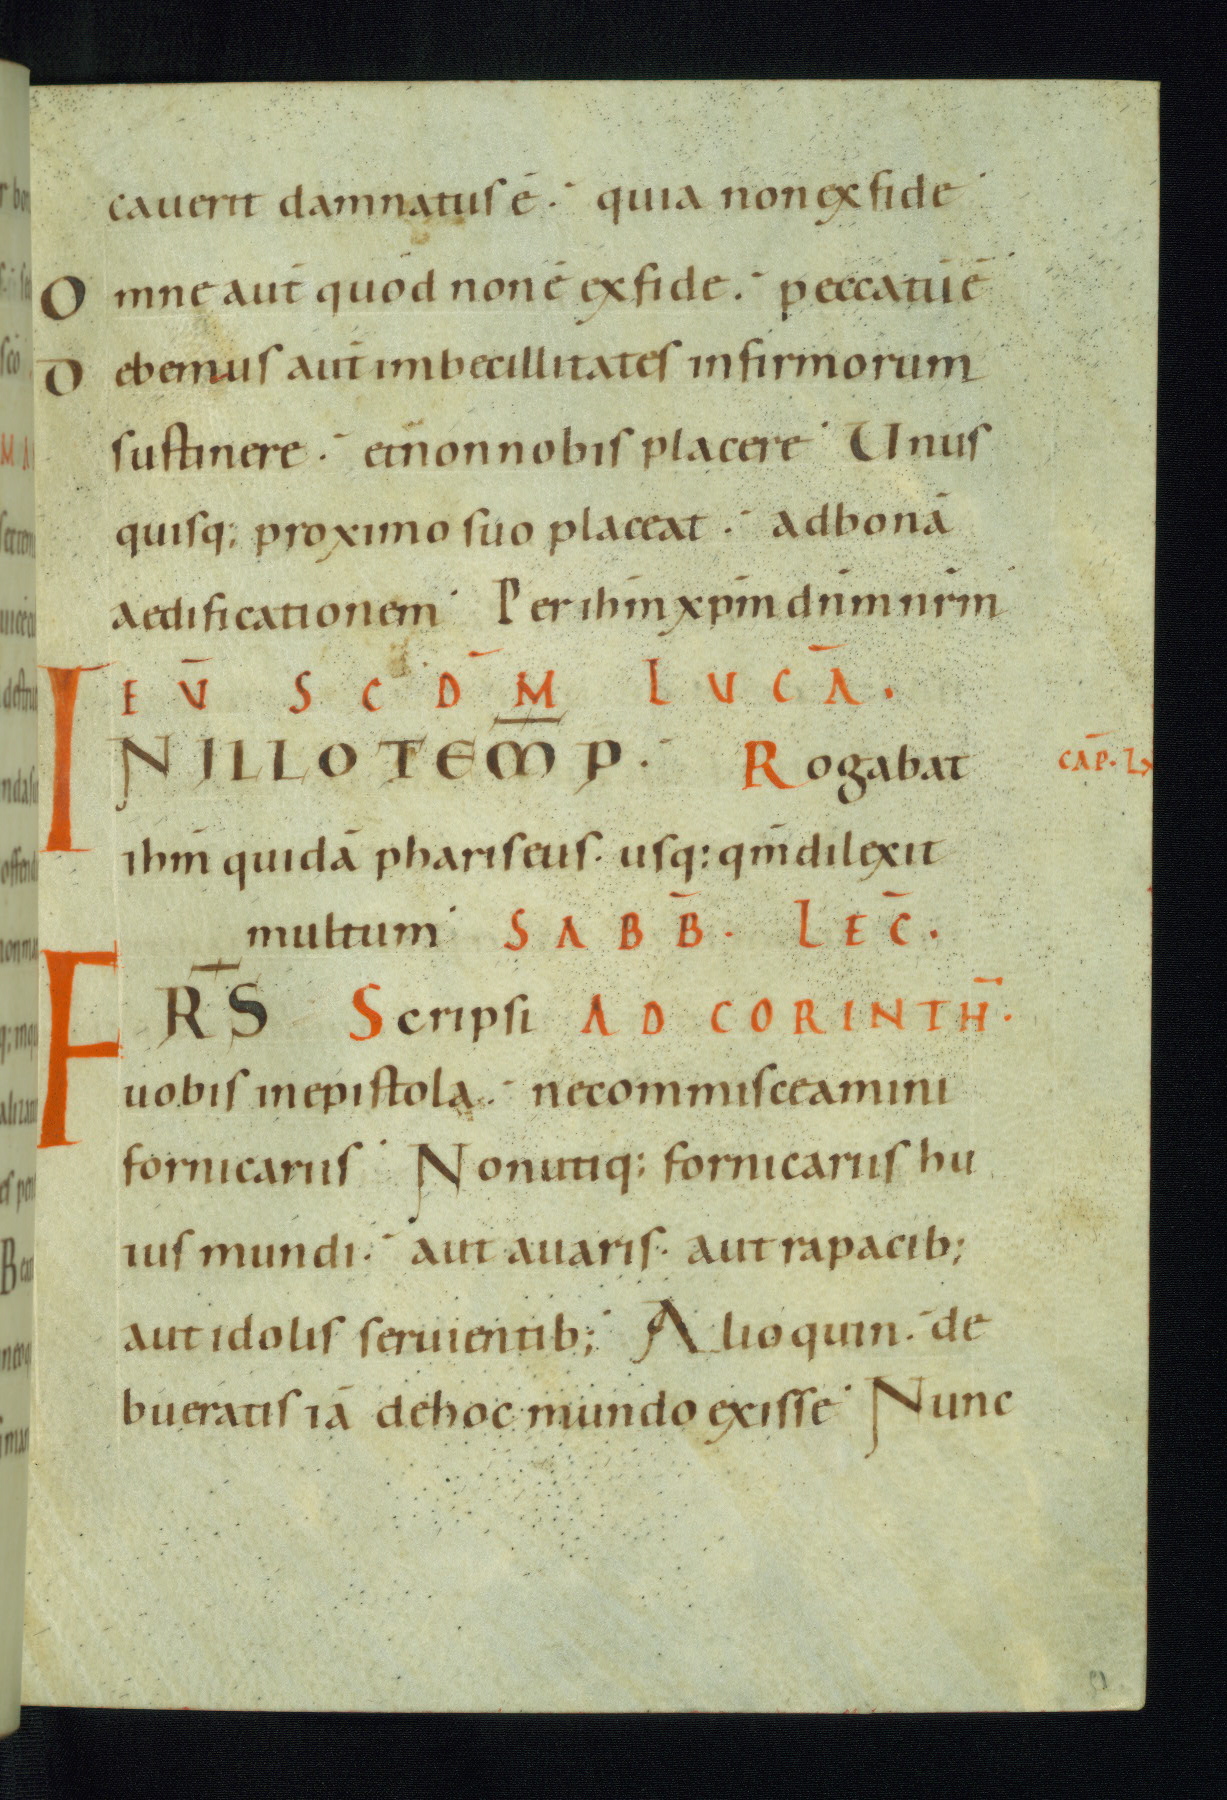 cauerit damnatus ē. quia non ex fide
Omne aut̄ quod non ē ex fide. peccatū ē
Debemus aut̄ imbecillitates infirmorum
sustinere. et non nobis placere Unus
quisq; proximo suo placeat. ad bonā
aedificationem Per ihm̄ xpm̄ dnm̄ nrm̄
EŪ SCDM̄ LUCĀ.
IN ILLO TEM̄P. Rogabat CAP̄.L
ihm̄ quidā phariseus. usq; qm̄ dilexit
multum SABB̄. LEC̄.
FR̄S Scripsi AD CORINTH̄.
uobis in epistola. ne commisceamini
fornicariis Non utiq; fornicariis hu
ius mundi. aut auaris. aut rapacib;
aut idolis seruientib; Alioquin. de
bueratis iā de hoc mundo exisse Nunc